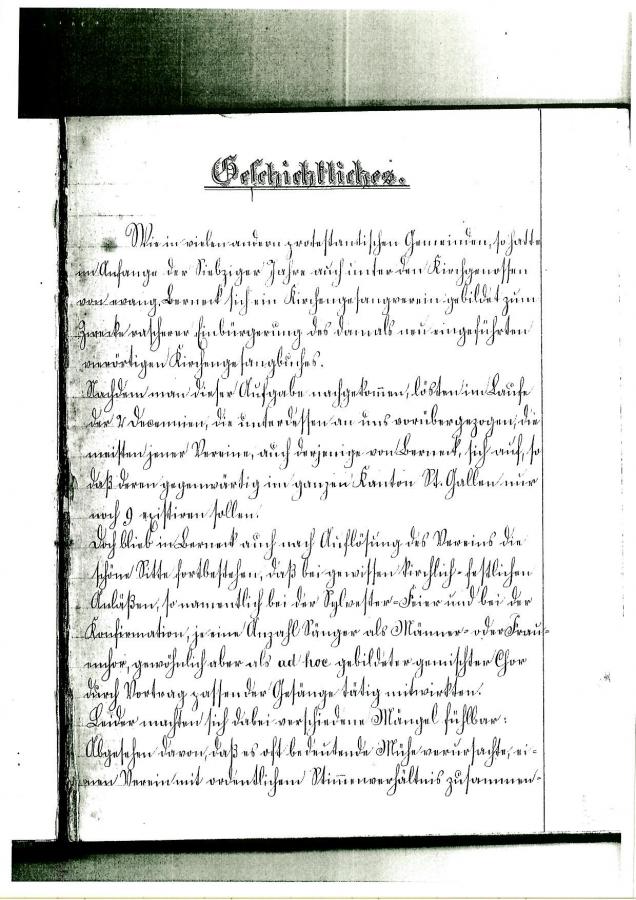 Geschichtliches.
Wie in vielen andern protestantischen Gemeinden, so hatte
im Anfange der Siebziger Jahre auch unter den Kirchgenossen
von evang. Berneck sich ein Kirchengesangverein gebildet zum
Zwecke rascherer Einbürgerung des damals neu eingeführten
vierörtigen Kirchengesangbuches.
Nachdem man dieser Aufgabe nachgekommen, lösten im Laufe
der 2 Decennien, die unterdessen an uns vorübergezogen, die
meisten jener Vereine, auch derjenige von Berneck, sich auf, so
daß deren gegenwärtig im ganzen Kanton St. Gallen nur
noch 9 existiren sollen.
Doch blieb in Berneck auch nach Auflösung des Vereins die
schöne Sitte fortbestehen, daß bei gewissen kirchlich-festlichen
Anläßen, so namentlich bei der Sylvester-Feier und bei der
Konfirmation, je eine Anzahl Sänger als Männer- oder Frau-
enchor, gewöhnlich aber als ad hoc gebildeter gemischter Chor
durch Vortrag passender Gesänge tätig mitwirkten.
Leider machten sich dabei verschiedene Mängel fühlbar:
Abgesehen davon, daß es oft bedeutende Mühe verursachte, ei-
nen Verein mit ordentlichem Stimmenverhältnis zusammen-